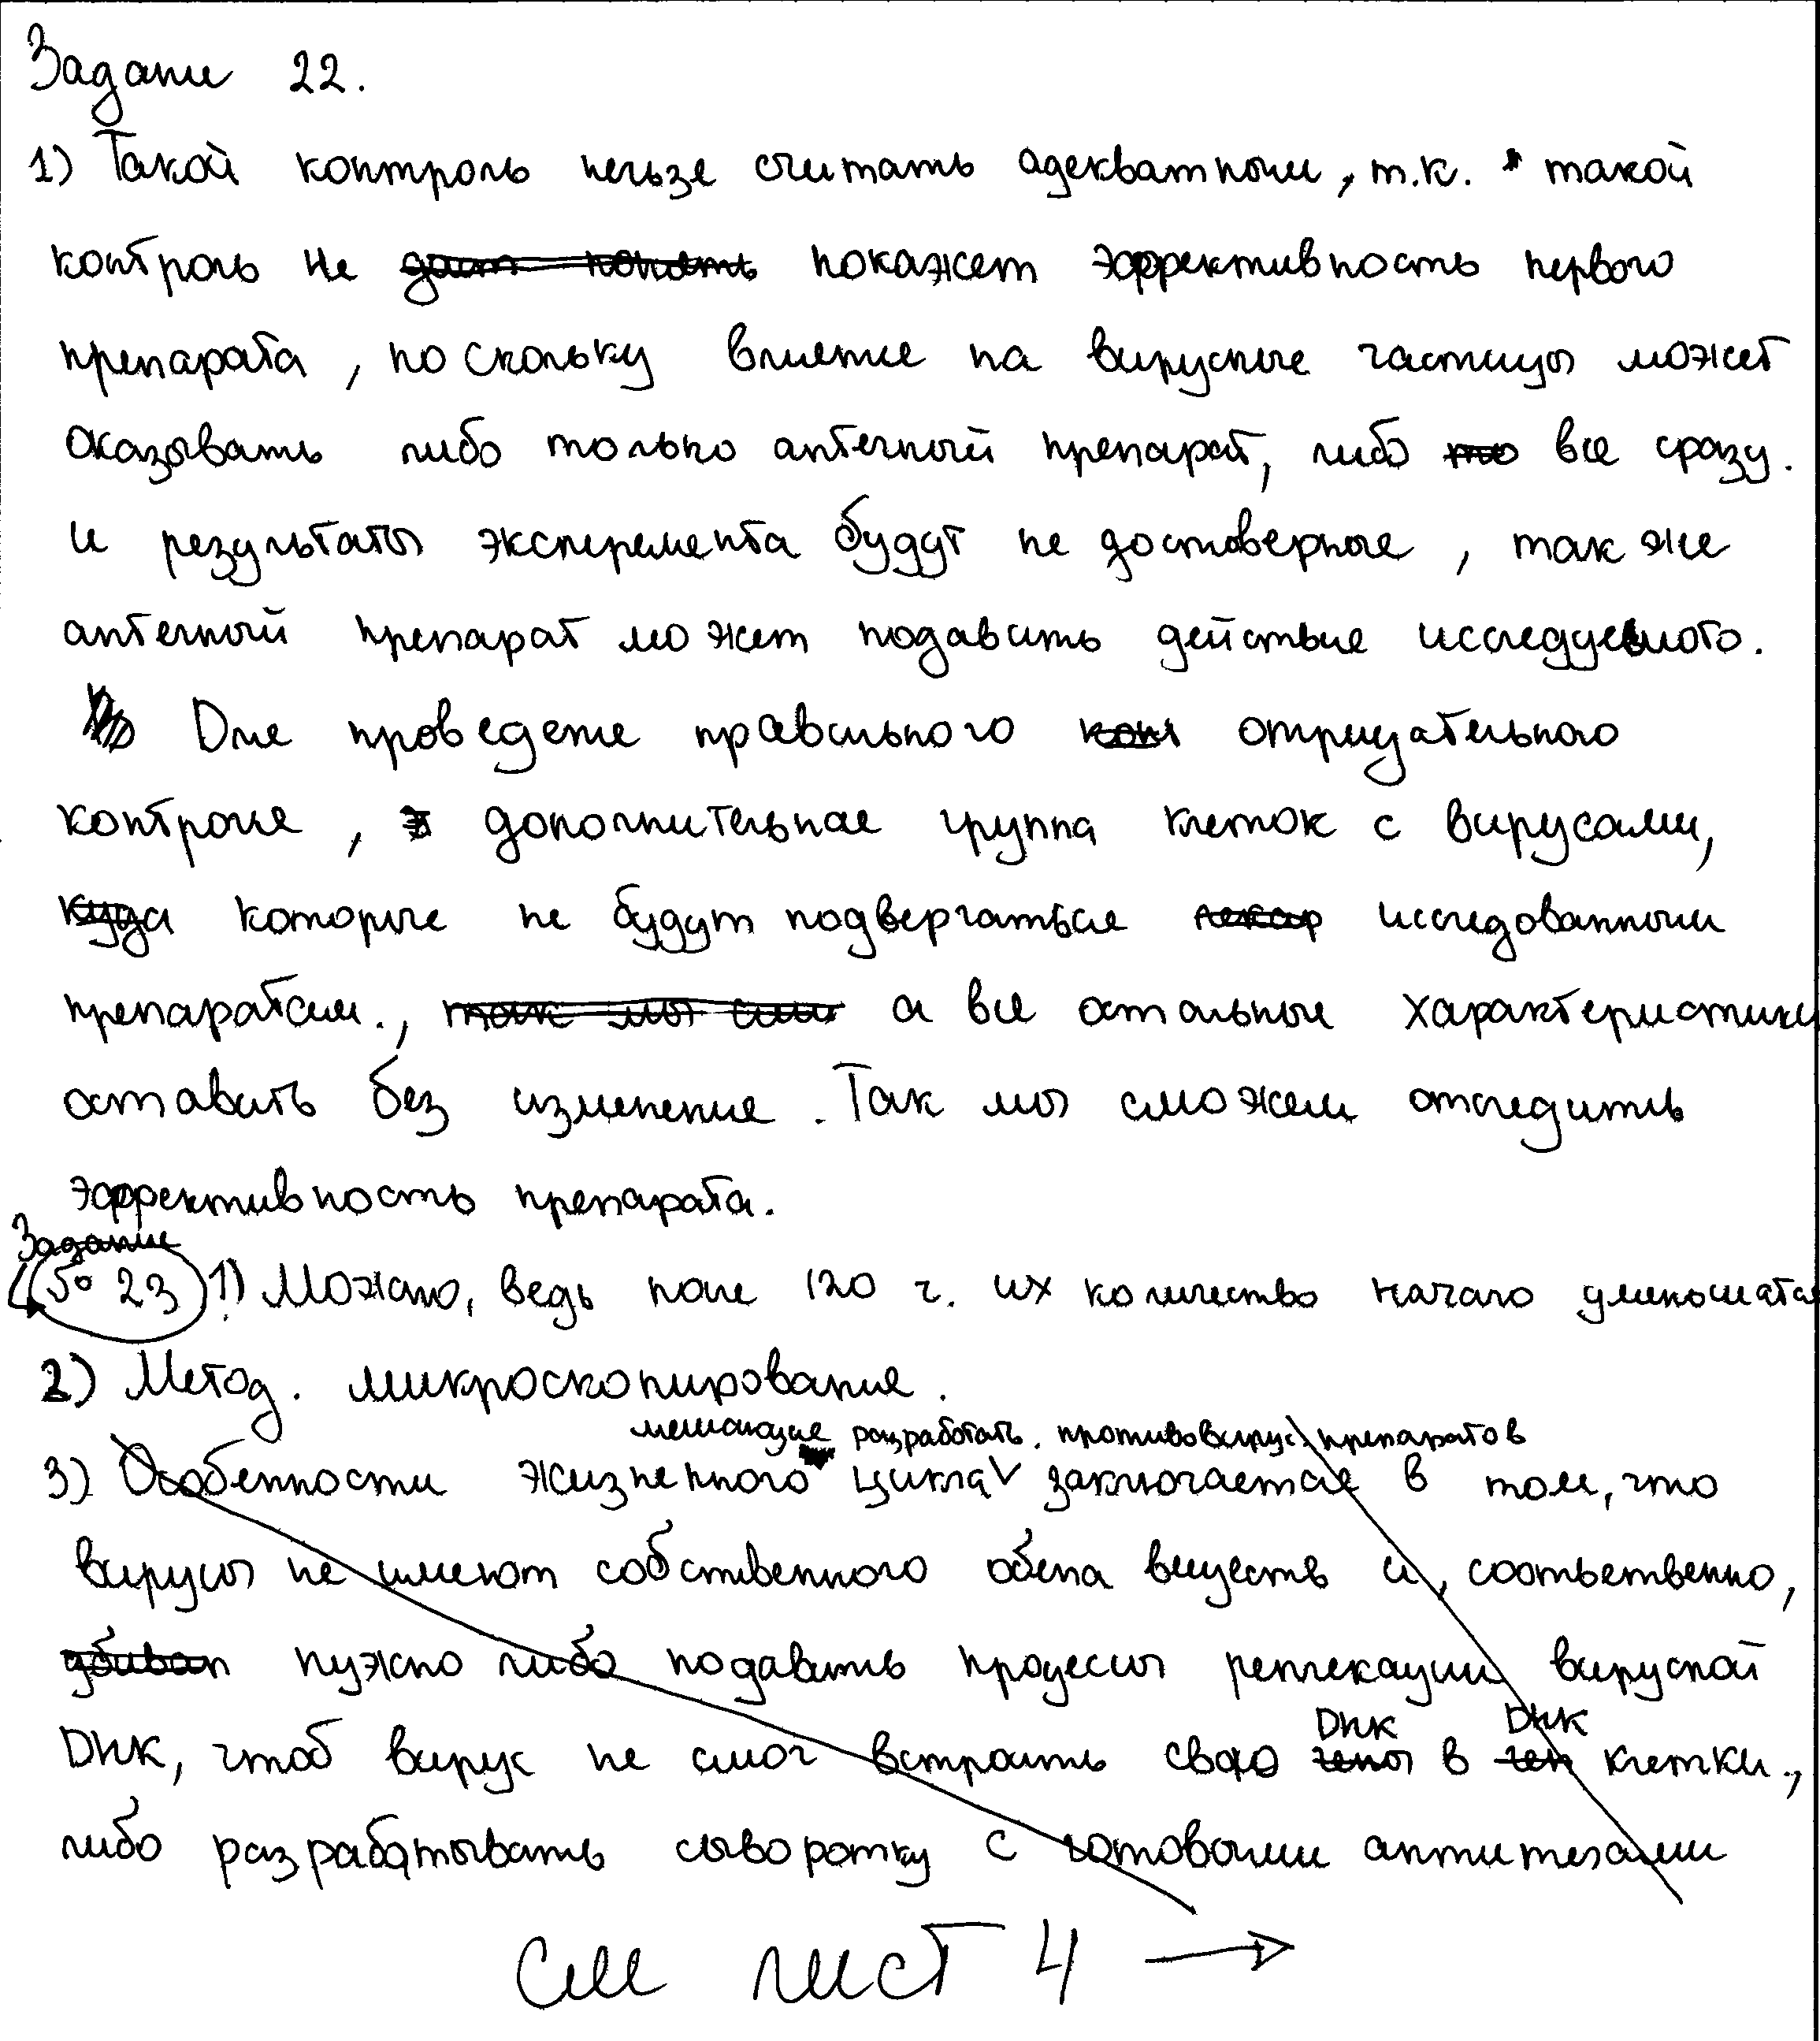 Задание 22.
1) Такой контроль нельзя считать адекватным, т.к. такой
контроль не дает понять покажет эффективность первого
препарата, поскольку влияние на вирусные частицы может
оказывать либо только аптечный препарат, либо то все сразу.
и результаты эксперемента будут не достоверные, так же
аптечный препарат может подавить действие исследуемого.
Для проведение правильного кон отрицательного
контроля, дополнительная группа клеток с вирусами,
куда которые не будут подвергаться лекар исследованным
препаратам., так мы смо а все остальные характеристики
оставить без изменения. Так мы сможем отследить
эффективность препарата.
Задание
№ 23 1) Можно, ведь после 120 ч. их количество начало уменьшатся
2) Метод. микроскопирования.
мешающие разработать. противовирус. препаратов
3) Особенности жизненного цикла заключается в том, что
вирусы не имеют собственного обена веществ и, соответственно,
убиват нужно либо подавить процессы реплекации вирусной
ДНК ДНК
ДНК, чтоб вирус не смог встроить свою гены в ген клетки.,
либо разрабатывать сыворотку с готовыми антителами
См лист 4 →